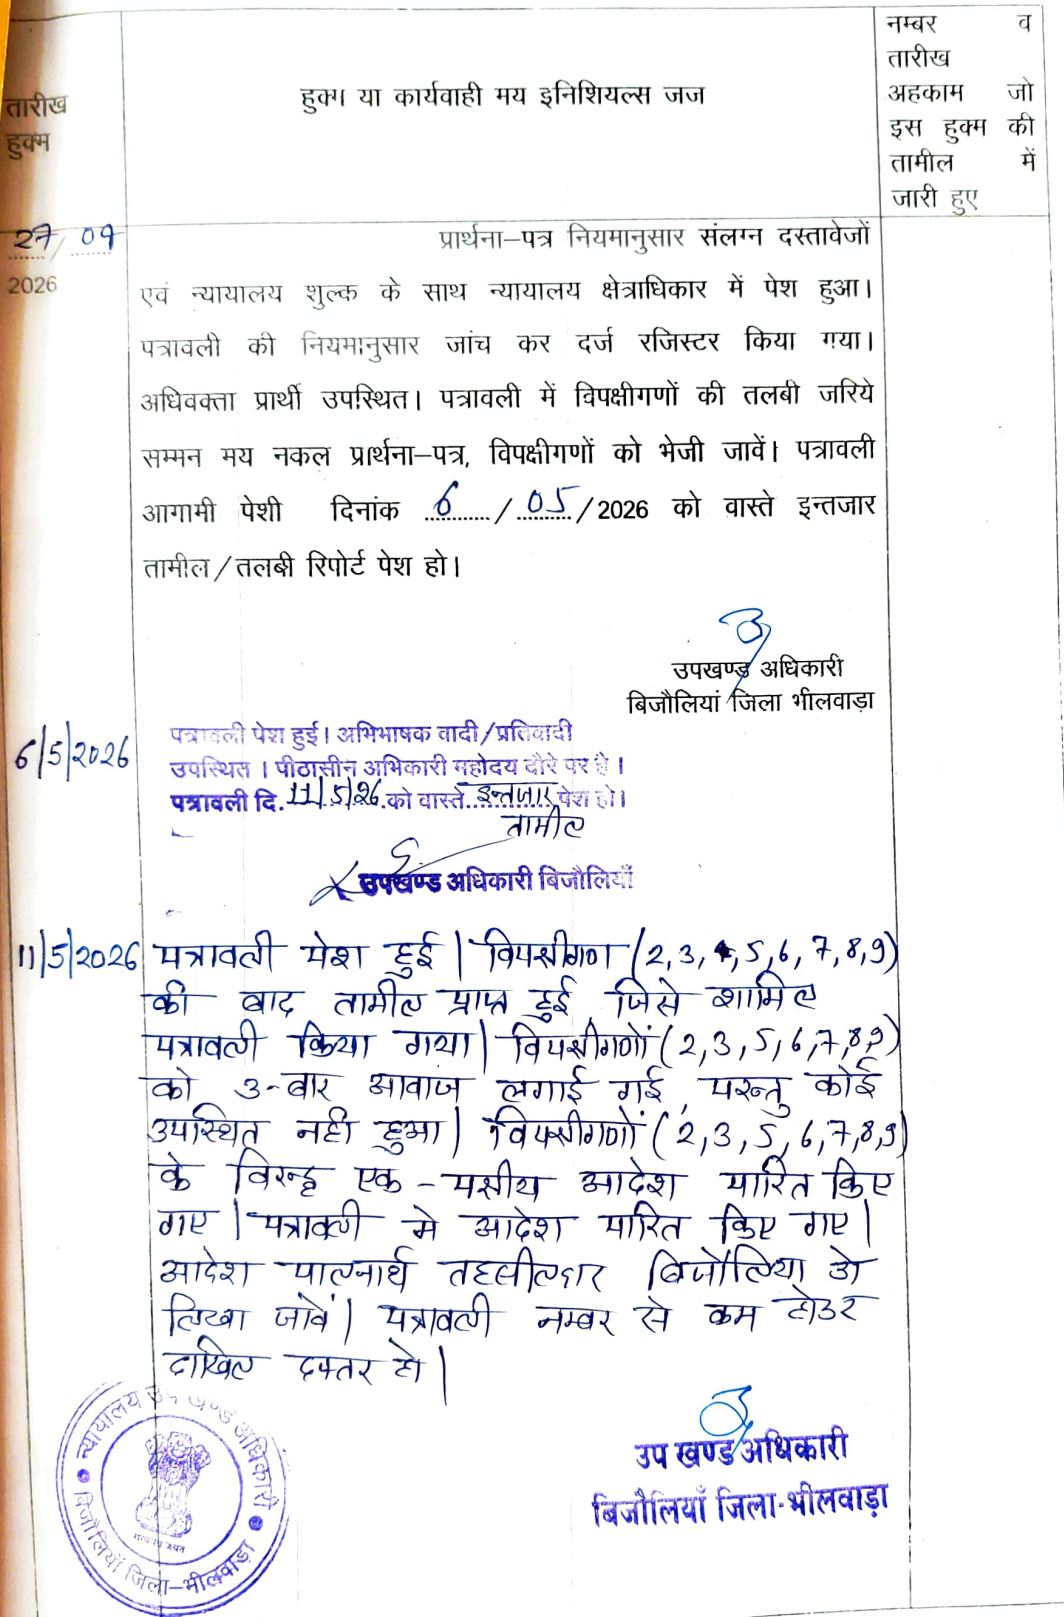 तारीख
हुक्म
हुक्म या कार्यवाही मय इनिशियल्स जज
नम्बर व
तारीख
अहकाम जो
इस हुक्म की
तामील में
जारी हुए
27/ 09
2026
प्रार्थना–पत्र नियमानुसार संलग्न दस्तावेजों
एवं न्यायालय शुल्क के साथ न्यायालय क्षेत्राधिकार में पेश हुआ।
पत्रावली की नियमानुसार जांच कर दर्ज रजिस्टर किया गया।
अधिवक्ता प्रार्थी उपस्थित। पत्रावली में विपक्षीगणों की तलबी जरिये
सम्मन मय नकल प्रार्थना–पत्र, विपक्षीगणों को भेजी जावें। पत्रावली
आगामी पेशी दिनांक 6 / 05 /2026 को वास्ते इन्तजार
तामील/तलबी रिपोर्ट पेश हो।
उपखण्ड अधिकारी
बिजौलियां जिला भीलवाड़ा
6/5/2026
पत्रावली पेश हुई। अभिभाषक वादी/प्रतिवादी
उपस्थित । पीठासीन अभिकारी महोदय दौरे पर है ।
पत्रावली दि. 11/5/26 को वास्ते इन्तजार पेश हो।
तामील
उपखण्ड अधिकारी बिजौलियाँ
11/5/2026 पत्रावली पेश हुई | विपक्षीगण (2,3,4,5,6,7,8,9)
की बाद तामील प्राप्त हुई, जिसे शामिल
पत्रावली किया गया| विपक्षीगणों (2,3,5,6,7,8,9)
को 3-बार आवाज लगाई गई, परन्तु कोई
उपस्थित नही हुआ| विपक्षीगणों (2,3,5,6,7,8,9)
के विरुद्ध एक-पक्षीय आदेश पारित किए
गए | पत्रावली मे आदेश पारित किए गए|
आदेश पालनार्थ तहसीलदार बिजौलिया को
लिखा जावें| पत्रावली नम्बर से कम होकर
दाखिल दफ्तर हो |
उप खण्ड अधिकारी
बिजौलियाँ जिला-भीलवाड़ा
न्यायालय उप खण्ड अधिकारी
बिजौलियाँ जिला–भीलवाड़ा